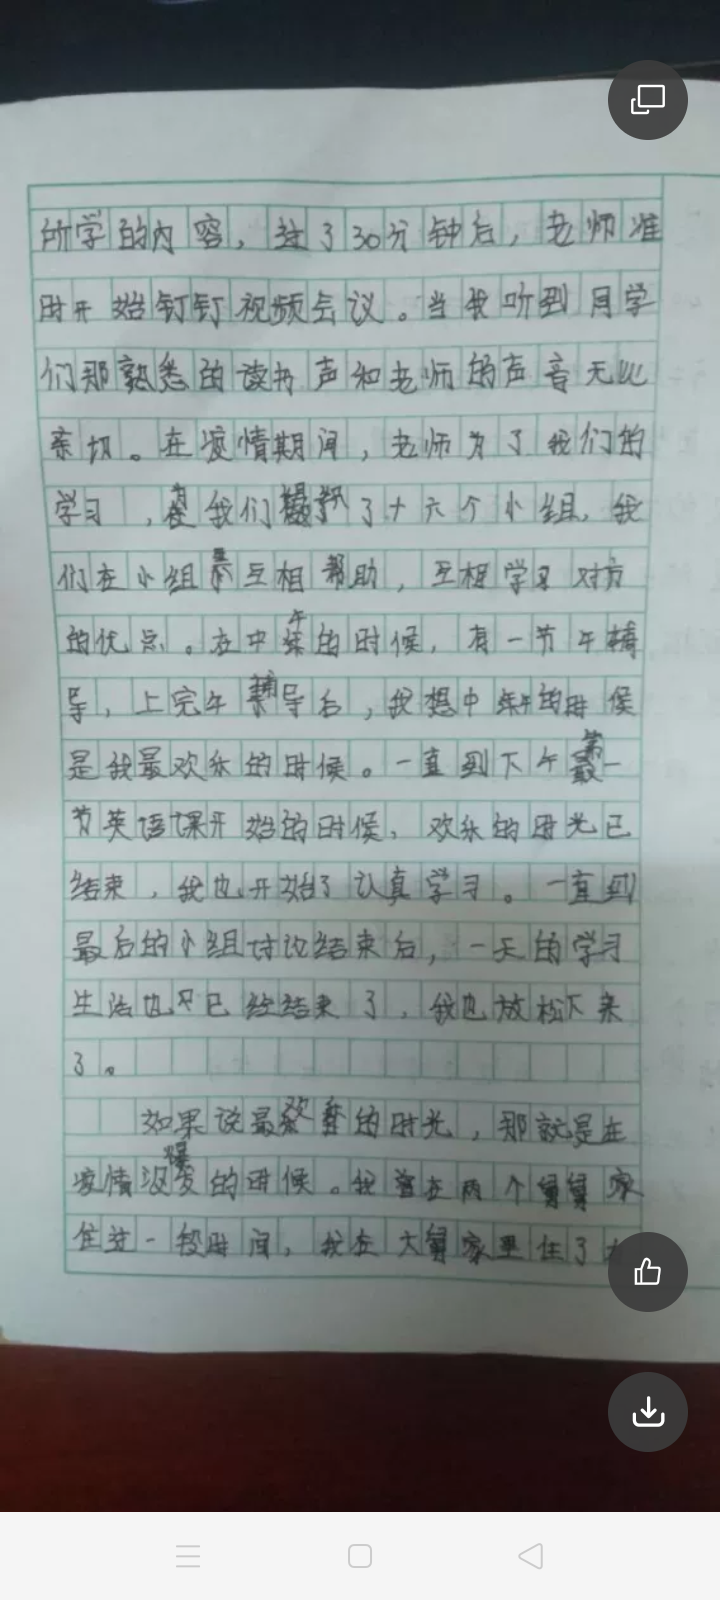 所学的内容，过了30分钟后，老师准
时开始钉钉视频会议。当我听到同学
们那熟悉的读书声和老师的声音无比
亲切。在疫情期间，老师为了我们的
学习，我们了十六个小组，我
们在小组里互相帮助，互相学习对方
的优点。在中午的时候，有一节午辅
导，上完午辅导后，我想中午的时候
是我最欢乐的时候。一直到下午第一
节英语课开始的时候，欢乐的时光已
结束，我也开始了认真学习。一直到
最后的小组讨论结束后，一天的学习
生活也已经结束了，我也放松下来
了。
如果说最欢乐的时光，那就是在
疫情没爆发的时候。我曾在两个舅舅家
住过一段时间，我在大舅家里住了